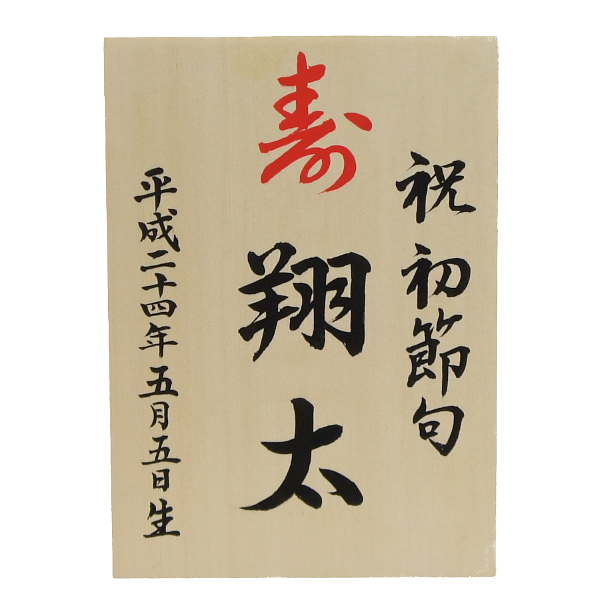 祝初節句
寿
翔太
平成二十四年五月五日生